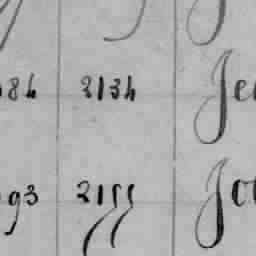 84 2134 Je
93 2155 Jo